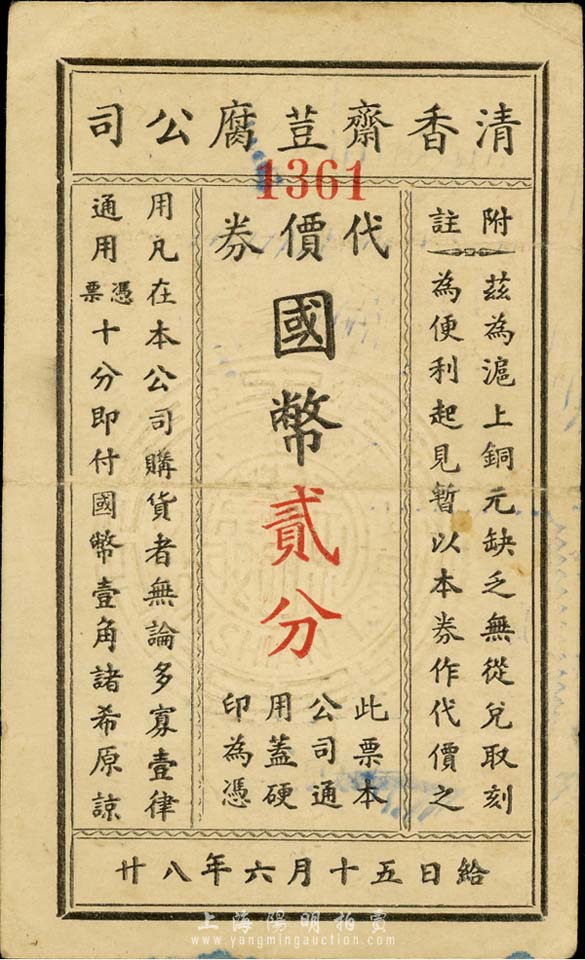 清香齋荳腐公司
1361
附註
茲為滬上銅元缺乏無從兌取刻
為便利起見暫以本券作代價之
代價券
國幣貳分
此票本
公司通
用蓋硬
印為憑
用凡在本公司購貨者無論多寡壹律
通用憑票十分即付國幣壹角諸希原諒
廿八年六月十五日給
上海陽明拍賣
www.yangmingauction.com